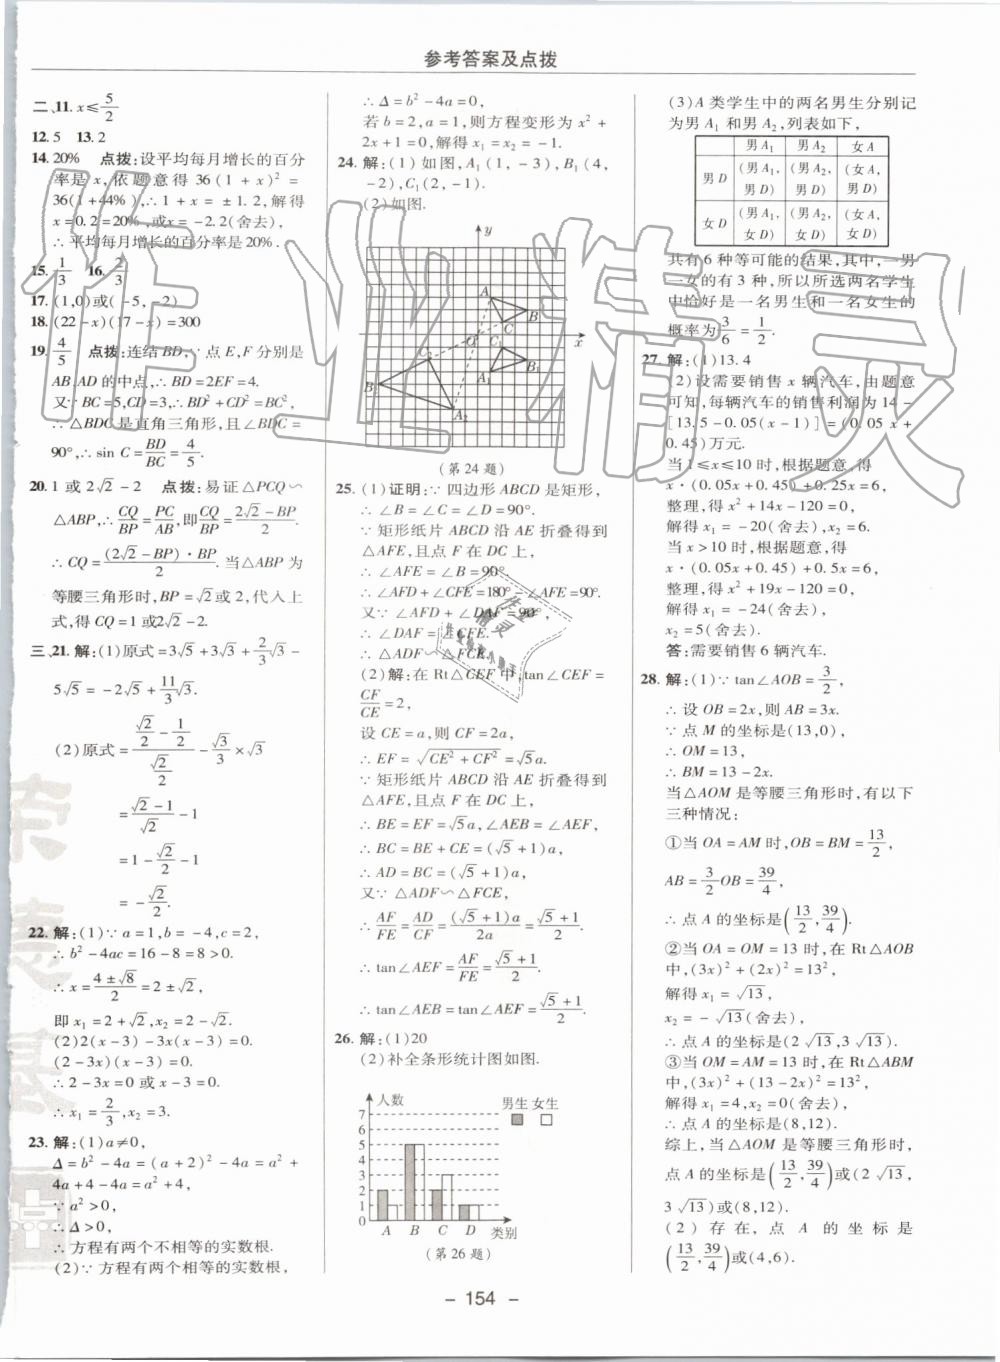 参考答案及点拨
二、11. x≤5/2
12. 5　13. 2
14. 20%　点拨:设平均每月增长的百分
率是x,依题意得36(1+x)²=
36(1+44%),∴1+x=±1.2,解得
x=0.2=20%,或x=-2.2(舍去).
∴平均每月增长的百分率是20%.
15. 1/3　16. 2/3
17. (1,0)或(-5,-2)
18. (22-x)(17-x)=300
19. 4/5　点拨:连结BD,∵点E,F分别是
AB,AD的中点,∴BD=2EF=4.
又∵BC=5,CD=3,∴BD²+CD²=BC²,
∴△BDC是直角三角形,且∠BDC=
90°,∴sin C=BD/BC=4/5.
20. 1或2√2-2　点拨:易证△PCQ∽
△ABP,∴CQ/BP=PC/AB,即CQ/BP=(2√2-BP)/2.
∴CQ=(2√2-BP)·BP/2.当△ABP为
等腰三角形时,BP=√2或2,代入上
式,得CQ=1或2√2-2.
三、21. 解:(1)原式=3√5+3√3+2/3√3-
5√5=-2√5+11/3√3.
(2)原式=(√2/2-1/2)/(√2/2)-√3/3×√3
=(√2-1)/√2-1
=1-√2/2-1
=-√2/2.
22. 解:(1)∵a=1,b=-4,c=2,
∴b²-4ac=16-8=8>0.
∴x=(4±√8)/2=2±√2,
即x₁=2+√2,x₂=2-√2.
(2)2(x-3)-3x(x-3)=0.
(2-3x)(x-3)=0,
∴2-3x=0或x-3=0.
∴x₁=2/3,x₂=3.
23. 解:(1)a≠0,
Δ=b²-4a=(a+2)²-4a=a²+
4a+4-4a=a²+4,
∵a²>0,
∴Δ>0,
∴方程有两个不相等的实数根.
(2)∵方程有两个相等的实数根,
∴Δ=b²-4a=0,
若b=2,a=1,则方程变形为x²+
2x+1=0,解得x₁=x₂=-1.
24. 解:(1)如图,A₁(1,-3),B₁(4,
-2),C₁(2,-1).
(2)如图.
y
A
B
C
x
C₁
C₂
B₂
B₁
A₁
A₂
(第24题)
25. (1)证明:∵四边形ABCD是矩形,
∴∠B=∠C=∠D=90°.
∵矩形纸片ABCD沿AE折叠得到
△AFE,且点F在DC上,
∴∠AFE=∠B=90°.
∴∠AFD+∠CFE=180°-∠AFE=90°.
又∵∠AFD+∠DAF=90°,
∴∠DAF=∠CFE.
∴△ADF∽△FCE.
(2)解:在Rt△CEF中,tan∠CEF=
CF/CE=2,
设CE=a,则CF=2a,
∴EF=√(CE²+CF²)=√5a.
∵矩形纸片ABCD沿AE折叠得到
△AFE,且点F在DC上,
∴BE=EF=√5a,∠AEB=∠AEF,
∴BC=BE+CE=(√5+1)a,
∴AD=BC=(√5+1)a,
又∵△ADF∽△FCE,
∴AF/FE=AD/CF=(√5+1)a/2a=(√5+1)/2.
∴tan∠AEF=AF/FE=(√5+1)/2.
∴tan∠AEB=tan∠AEF=(√5+1)/2.
26. 解:(1)20
(2)补全条形统计图如图.
人数
男生 女生
7
6
5
4
3
2
1
0
A B C D 类别
(第26题)
(3)A类学生中的两名男生分别记
为男A₁和男A₂,列表如下,
男A₁ 男A₂ 女A
男D (男A₁,男D) (男A₂,男D) (女A,男D)
女D (男A₁,女D) (男A₂,女D) (女A,女D)
共有6种等可能的结果,其中,一男
一女的有3种,所以所选两名学生
中恰好是一名男生和一名女生的
概率为3/6=1/2.
27. 解:(1)13.4
(2)设需要销售x辆汽车,由题意
可知,每辆汽车的销售利润为14-
[13.5-0.05(x-1)]=(0.05x+
0.45)万元.
当1≤x≤10时,根据题意,得
x·(0.05x+0.45)+0.25x=6,
整理,得x²+14x-120=0,
解得x₁=-20(舍去),x₂=6.
当x>10时,根据题意,得
x·(0.05x+0.45)+0.5x=6,
整理,得x²+19x-120=0,
解得x₁=-24(舍去),
x₂=5(舍去).
答:需要销售6辆汽车.
28. 解:(1)∵tan∠AOB=3/2,
∴设OB=2x,则AB=3x.
∵点M的坐标是(13,0),
∴OM=13,
∴BM=13-2x.
当△AOM是等腰三角形时,有以下
三种情况:
①当OA=AM时,OB=BM=13/2,
AB=3/2OB=39/4,
∴点A的坐标是(13/2,39/4).
②当OA=OM=13时,在Rt△AOB
中,(3x)²+(2x)²=13²,
解得x₁=√13,
x₂=-√13(舍去),
∴点A的坐标是(2√13,3√13).
③当OM=AM=13时,在Rt△ABM
中,(3x)²+(13-2x)²=13²,
解得x₁=4,x₂=0(舍去),
∴点A的坐标是(8,12).
综上,当△AOM是等腰三角形时,
点A的坐标是(13/2,39/4)或(2√13,
3√13)或(8,12).
(2)存在,点A的坐标是
(13/2,39/4)或(4,6).
- 154 -
作业精灵